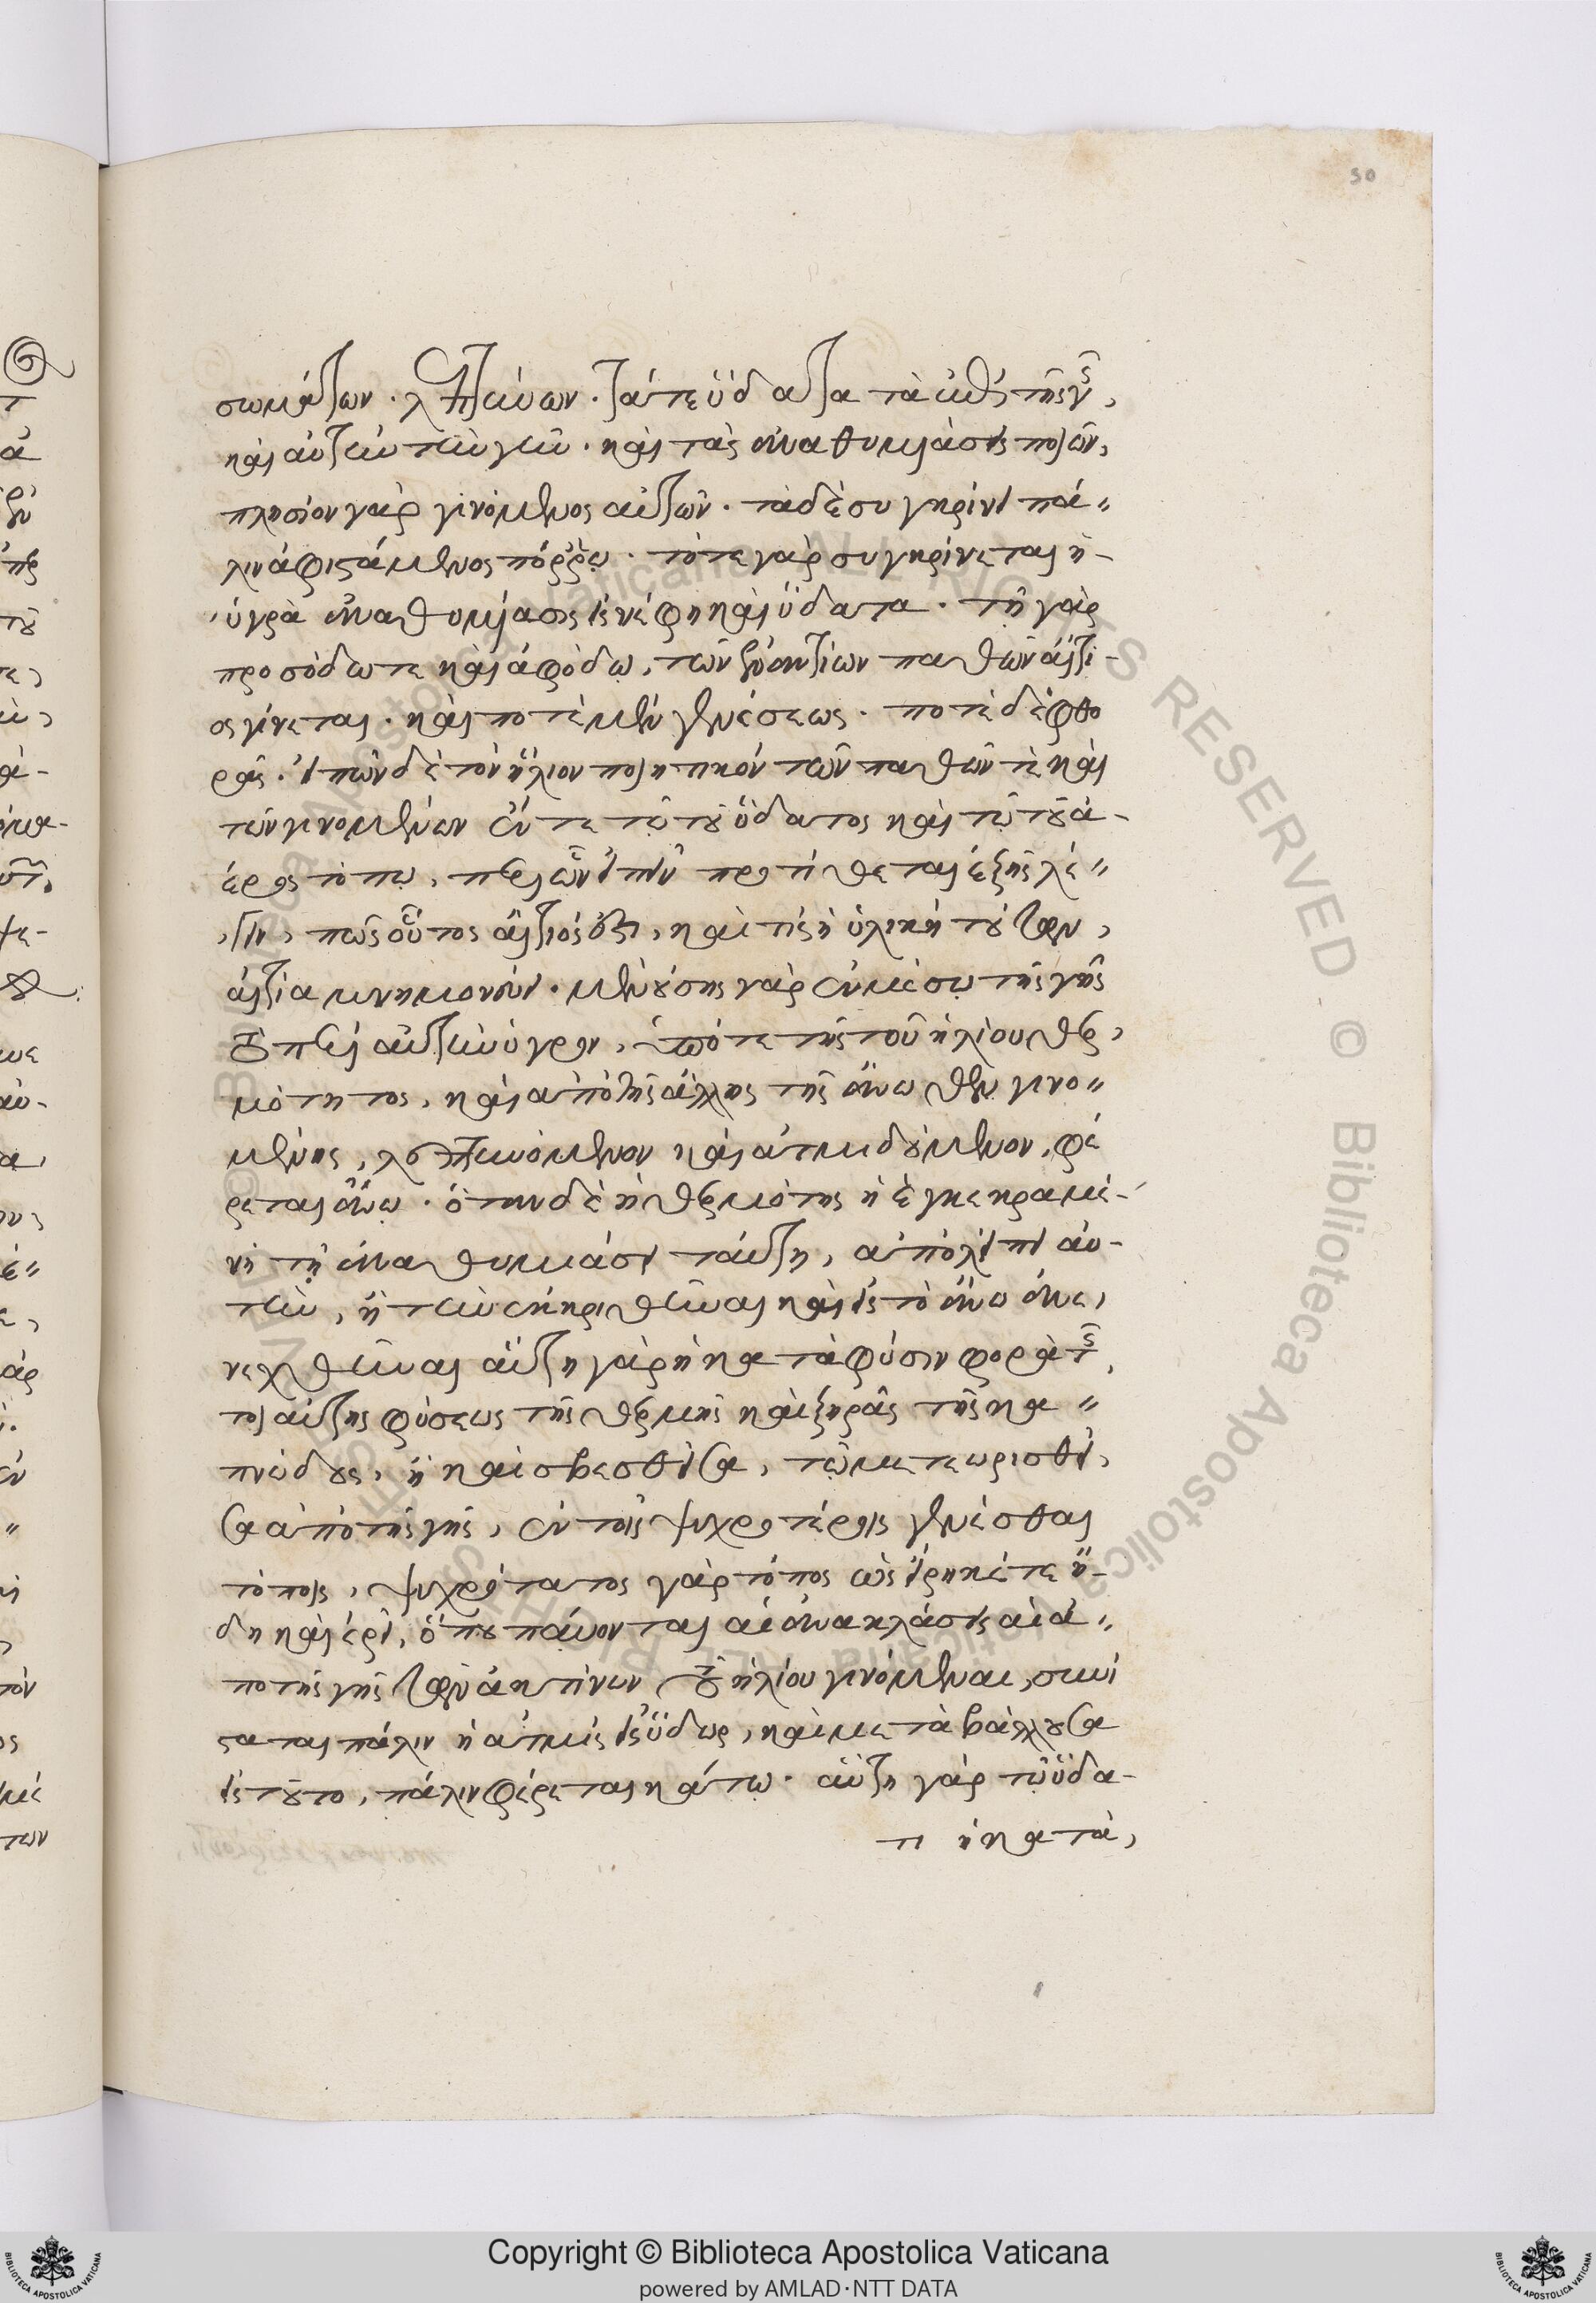 50
σωμάτων. λεπτύνων. τά τε ὕδατα τὰ ἐπὶ τῆς γῆς,
καὶ αὐτὴν τὴν γῆν. καὶ τὰς ἀναθυμιάσεις ποιῶν,
πλησίον γὰρ γινόμενος αὐτῶν. τὰ δὲ συγκρίνει πά-
λιν ἀφιστάμενος πόρρω. τότε γὰρ συγκρίνεται ἡ
ὑγρὰ ἀναθυμίασις εἰς νέφη καὶ ὕδατα. τῇ γὰρ
προσόδω τε καὶ ἀφόδω, τῶν ἐναντίων παθῶν αἴτι-
ος γίνεται. καὶ ποτὲ μὲν γενέσεως. ποτὲ δὲ φθο
ρᾶς. εἰπὼν δὲ τὸν ἥλιον ποιητικὸν τῶν παθῶν τε καὶ
τῶν γινομένων ἔν τε τῷ τοῦ ὕδατος καὶ τῷ τοῦ ἀ-
έρος τόπω, περὶ ὧν εἰπεῖν προτίθεται ἑξῆς λέ-
γειν, πῶς οὗτος αἴτιός ἐστι, καὶ τίς ἡ ὑλικὴ τούτων,
αἰτία μνημονεύει. μενούσης γὰρ ἐν μέσῳ τῆς γῆς
τὸ περὶ αὐτὴν ὑγρὸν, ὑπό τε τῆς τοῦ ἡλίου θερ,
μότητος, καὶ ἀπὸ τῆς ἄλλης τῆς ἄνωθεν γινο-
μένης, λεπτυνόμενον καὶ ἀτμιδούμενον, φέ
ρεται ἄνω. ὅταν δὲ ἡ θερμότης ἡ ἐγκεκραμέ-
νη τῇ ἀναθυμιάσει ταύτῃ, ἀπολείπει αὐ-
τὴν, ἢ τῷ ἐκκριθῆναι καὶ εἰς τὸ ἄνω ἀνε,
νεχθῆναι αὕτη γὰρ ἡ κατὰ φύσιν φορὰ τῆς
τοιαύτης φύσεως τῆς θερμῆς καὶ ξηρᾶς τῆς κα-
πνώδους, ἢ καὶ σβεσθεῖσα, τῷ μετεωρισθεῖ,
σα ἀπὸ τῆς γῆς, ἐν τοῖς ψυχροτέροις γενέσθαι
τόποις, ψυχρότατος γὰρ τόπος ὡς εἴρηκέ τε ἤ-
δη καὶ ἐρεῖ, ὅπου παύονται αἱ ἀνακλάσεις αἱ ἀ-
πὸ τῆς γῆς τῶν ἀκτίνων τοῦ ἡλίου γινόμεναι, συνί
σταται πάλιν ἡ ἀτμὶς εἰς ὕδωρ, καὶ μεταβάλλουσα
εἰς τοῦτο, πάλιν φέρεται κάτω. αὕτη γὰρ τῷ ὕδα-
τι ἡ κατὰ,
Copyright © Biblioteca Apostolica Vaticana
powered by AMLAD·NTT DATA